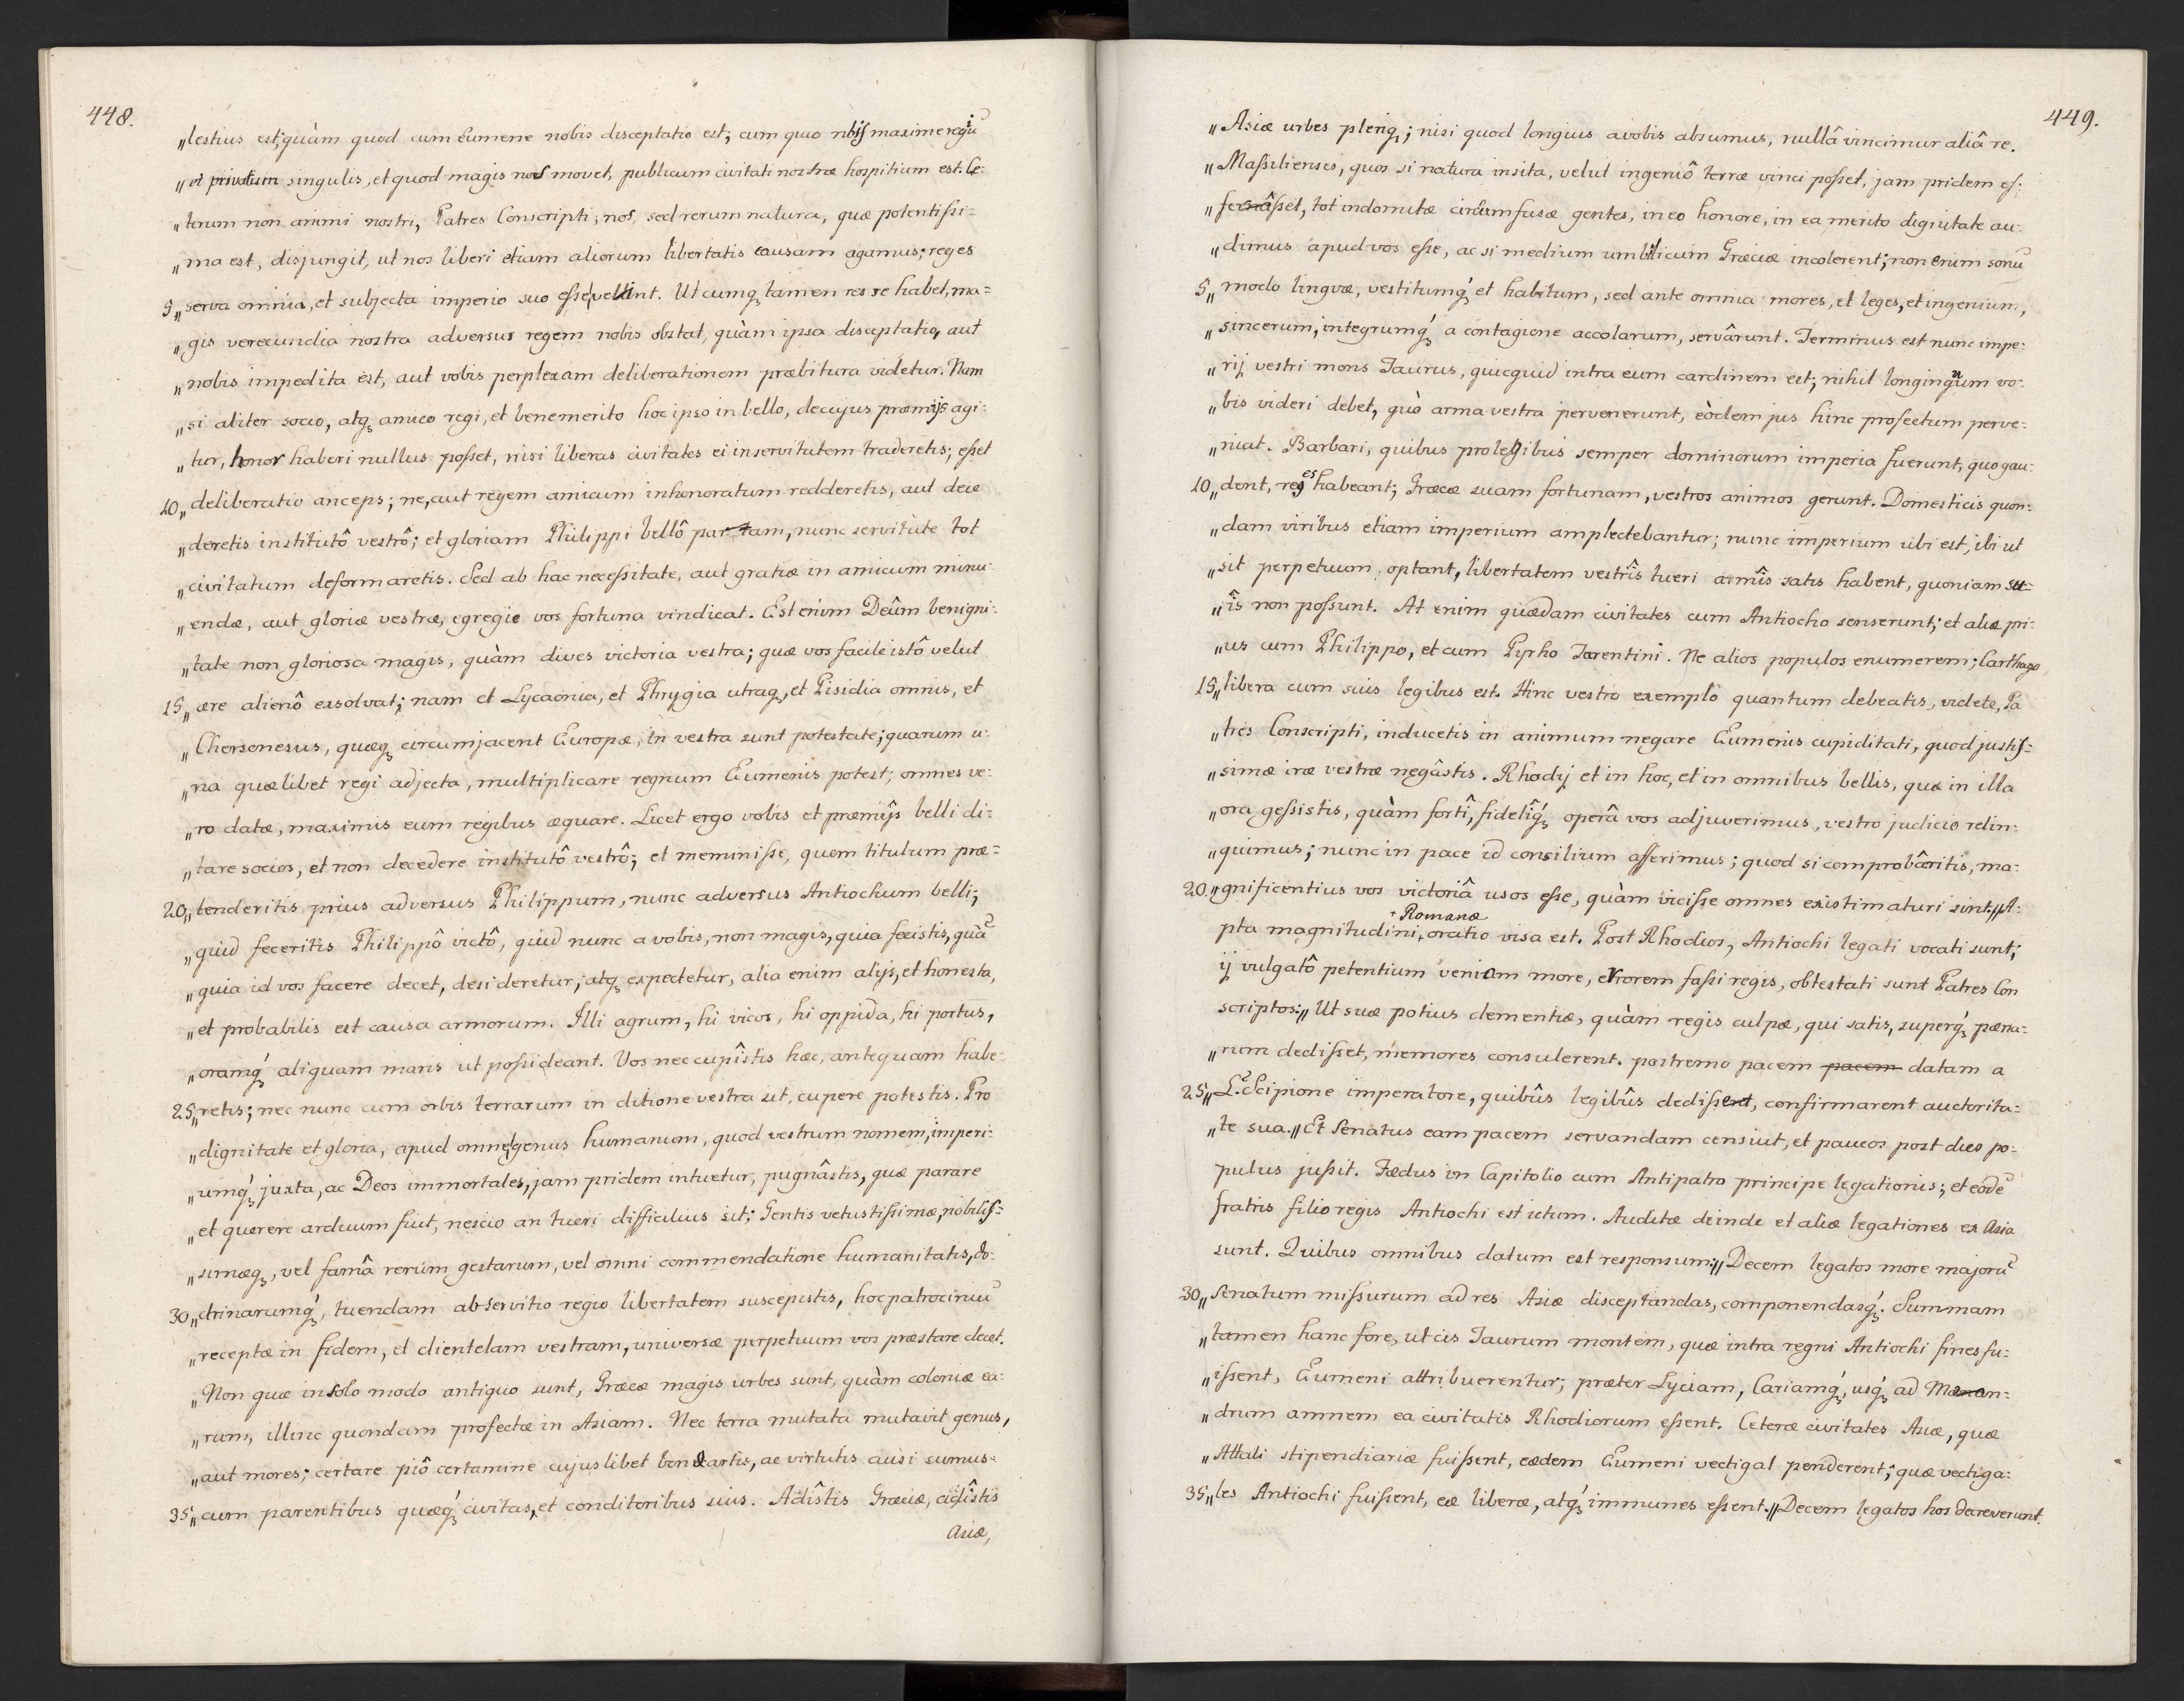 448.
„lestius est; quàm quod cum Eumene nobis disceptatio est; cum quo nobis maxime regiũ
„et privatum singulis, et quod magis nos movet, publicum civitati nostræ hospitium est. Ce:
„terum non animi nostri, Patres Conscripti, nos, sed rerum natura, quæ potentissi=
„ma est, disjungit, ut nos liberi etiam aliorum libertatis causam agamus; reges
5„serva omnia, et subjecta imperio suo esse, velint. Utcumq̨ tamen res se habet, ma=
„gis verecundia nostra adversus regem nobis obstat, quàm ipsa disceptatio, aut
„nobis impedita est, aut vobis perplexam deliberationem præbitura videtur. Nam
„si aliter socio, atq̨ amico regi, et benemerito hoc ipso in bello, de cujus præmijs agi:
„tur, honor haberi nullus posset, nisi liberas civitates ei in servitutem traderetis; esset
10„deliberatio anceps; ne, aut regem amicum inhonoratum redderetis, aut dece
„deretis institutô vestrô; et gloriam Philippi bellô partam, nunc servitute tot
„civitatum deformaretis. Sed ab hac necessitate, aut gratiæ in amicum minu:
„endæ, aut gloriæ vestræ, egregie vos fortuna vindicat. Est enim Deûm benigni:
„tate non gloriosa magis, quàm dives victoria vestra; quæ vos facile istô velut
15„ære alienô exsolvat; nam et Lycaonia, et Phrygia utraq̨, et Pisidia omnis, et
„Chersonesus, quæq̨ circumjacent Europæ, in vestra sunt potestate; quarum u:
„na quælibet regi adjecta, multiplicare regnum Eumenis potest; omnes ve:
„ro datæ, maximis eum regibus æquare. Licet ergo vobis et præmijs belli di:
„tare socios, et non decedere institutô vestrô; et meminisse, quem titulum præ=
20„tenderitis prius adversus Philippum, nunc adversus Antiochum belli;
„quid feceritis Philippô victô, quid nunc a vobis, non magis, quia fecistis, quã
„quia id vos facere decet, desideretur, atq̨ expectetur, alia enim alijs, et honesta,
„et probabilis est causa armorum. Illi agrum, hi vicos, hi oppida, hi portus,
„oramq̨́ aliquam maris ut possideant. Vos nec cupîstis hæc, antequam habe:
25„retis; nec nunc cum orbis terrarum in ditione vestra sit, cupere potestis. Pro
„dignitate et gloria, apud omne genus humanum, quod vestrum nomem, imperi:
„umq̨́ juxta, ac Deos immortales, jam pridem intuetur, pugnâstis, quæ parare
„et quærere arduum fuit, nescio an tueri difficilius sit; Gentis vetustissimæ, nobilis=
„simæq̨, vel famâ rerum gestarum, vel omni commendatione humanitatis, do:
30„ctrinarumq̨́, tuendam ab servitio regio libertatem suscepistis, hoc patrociniũ
„receptæ in fidem, et clientelam vestram, universæ perpetuum vos præstare decet.
„Non quæ in solo modo antiquo sunt, Græcæ magis urbes sunt, quàm coloniæ ea:
„rum, illinc quondam profectæ in Asiam. Nec terra mutata mutavit genus,
„aut mores; certare piô certamine cujuslibet bonæ artis, ac virtutis ausi sumus
35„cum parentibus quæq̨́ civitas, et conditoribus suis. Adîstis Græciæ, adîstis
Asiæ,
449.
„Asiæ urbes pleriq̨; nisi quod longius a vobis absumus, nullâ vincimur aliâ re.
„Massilienses, quos si natura insita, velut ingeniô terræ vinci posset, jam pridem ef:
„ferâsset, tot indomitæ circumfusæ gentes, in eo honore, in ea merito dignitate au:
„dimus apud vos esse, ac si medium umbilicum Græciæ incolerent; non enim sonũ
5„modo lingvæ, vestitumq̨́ et habitum, sed ante omnia mores, et leges, et ingenium,
„sincerum, integrumq̨́ a contagione accolarum, servârunt. Terminus est nunc impe:
„rij vestri mons Taurus, quicquid intra eum cardinem est; nihil longinquum vo:
„bis videri debet, quò arma vestra pervenerunt, eòdem jus hinc profectum perve:
„niat. Barbari, quibus pro legibus semper dominorum imperia fuerunt, quo gau:
10„dent, reges habeant; Græcæ suam fortunam, vestros animos gerunt. Domesticis quon:
„dam viribus etiam imperium amplectebantur; nunc imperium ubi est, ibi ut
„sit perpetuum, optant, libertatem vestrîs tueri armîs satis habent, quoniam su:
„îs non possunt. At enim quædam civitates cum Antiocho senserunt; et aliæ pri:
„us cum Philippo, et cum Pyrho Tarentini. Ne alios populos enumerem; Carthago
15„libera cum suis legibus est. Hinc vestro exemplo quantum debeatis, videte, Pa
„tres Conscripti, inducetis in animum negare Eumenis cupiditati, quod justis=
„simæ iræ vestræ negâstis. Rhodij et in hoc, et in omnibus bellis, quæ in illa
„ora gessistis, quàm fortî, fidelîq̨́ operâ vos adjuverimus, vestro judicio relin:
„quimus; nunc in pace id consilium afferimus; quod si comprobâritis, ma:
20.„gnificentius vos victoriâ usos esse, quàm vicisse omnes existimaturi sint.„A:
pta magnitudini + Romanæ oratio visa est. Post Rhodios, Antiochi legati vocati sunt;
ij vulgatô petentium veniam more, errorem fassi regis, obtestati sunt Patres Con
scriptos:„Ut suæ potius clementiæ, quàm regis culpæ, qui satis, superq̨́ pæna:
„rum dedisset, memores consulerent. postremo pacem pacem datam a
25„L. Scipione imperatore, quibûs legibûs dedisset, confirmarent auctorita:
„te sua.„Et Senatus eam pacem servandam censiut, et paucos post dies po:
pulus jussit. Fædus in Capitolio cum Antipatro principe legationis; et eodẽ
fratris filio regis Antiochi est ictum. Auditæ deinde et aliæ legationes ex Asia
sunt. Quibus omnibus datum est responsum:„Decem legatos more majorũ
30„Senatum missurum ad res Asiæ disceptandas, componendasq̨́. Summam
„tamen hanc fore, ut cis Taurum montem, quæ intra regni Antiochi fines fu=
„issent, Eumeni attribuerentur; præter Lyciam, Cariamq̨́, usq̨́ ad Mæan=
„drum amnem ea civitatis Rhodiorum essent. Ceteræ civitates Asiæ, quæ
„Attali stipendiariæ fuissent, eædem Eumeni vectigal penderent; quæ vectiga:
35„les Antiochi fuissent, eæ liberæ, atq̨́ immunes essent.„Decem legatos hos decreverunt.